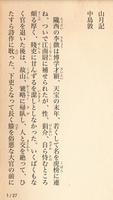 山月記
中島敦
隴西の李徴は博学才穎、天宝の末年、若くして名を虎榜に連
ね、ついで江南尉に補せられたが、性、狷介、自ら恃むところ
頗る厚く、賤吏に甘んずるを潔しとしなかった。いくばくもな
く官を退いた後は、故山、虢略に帰臥し、人と交を絶って、ひ
たすら詩作に耽った。下吏となって長く膝を俗悪な大官の前に
1/27